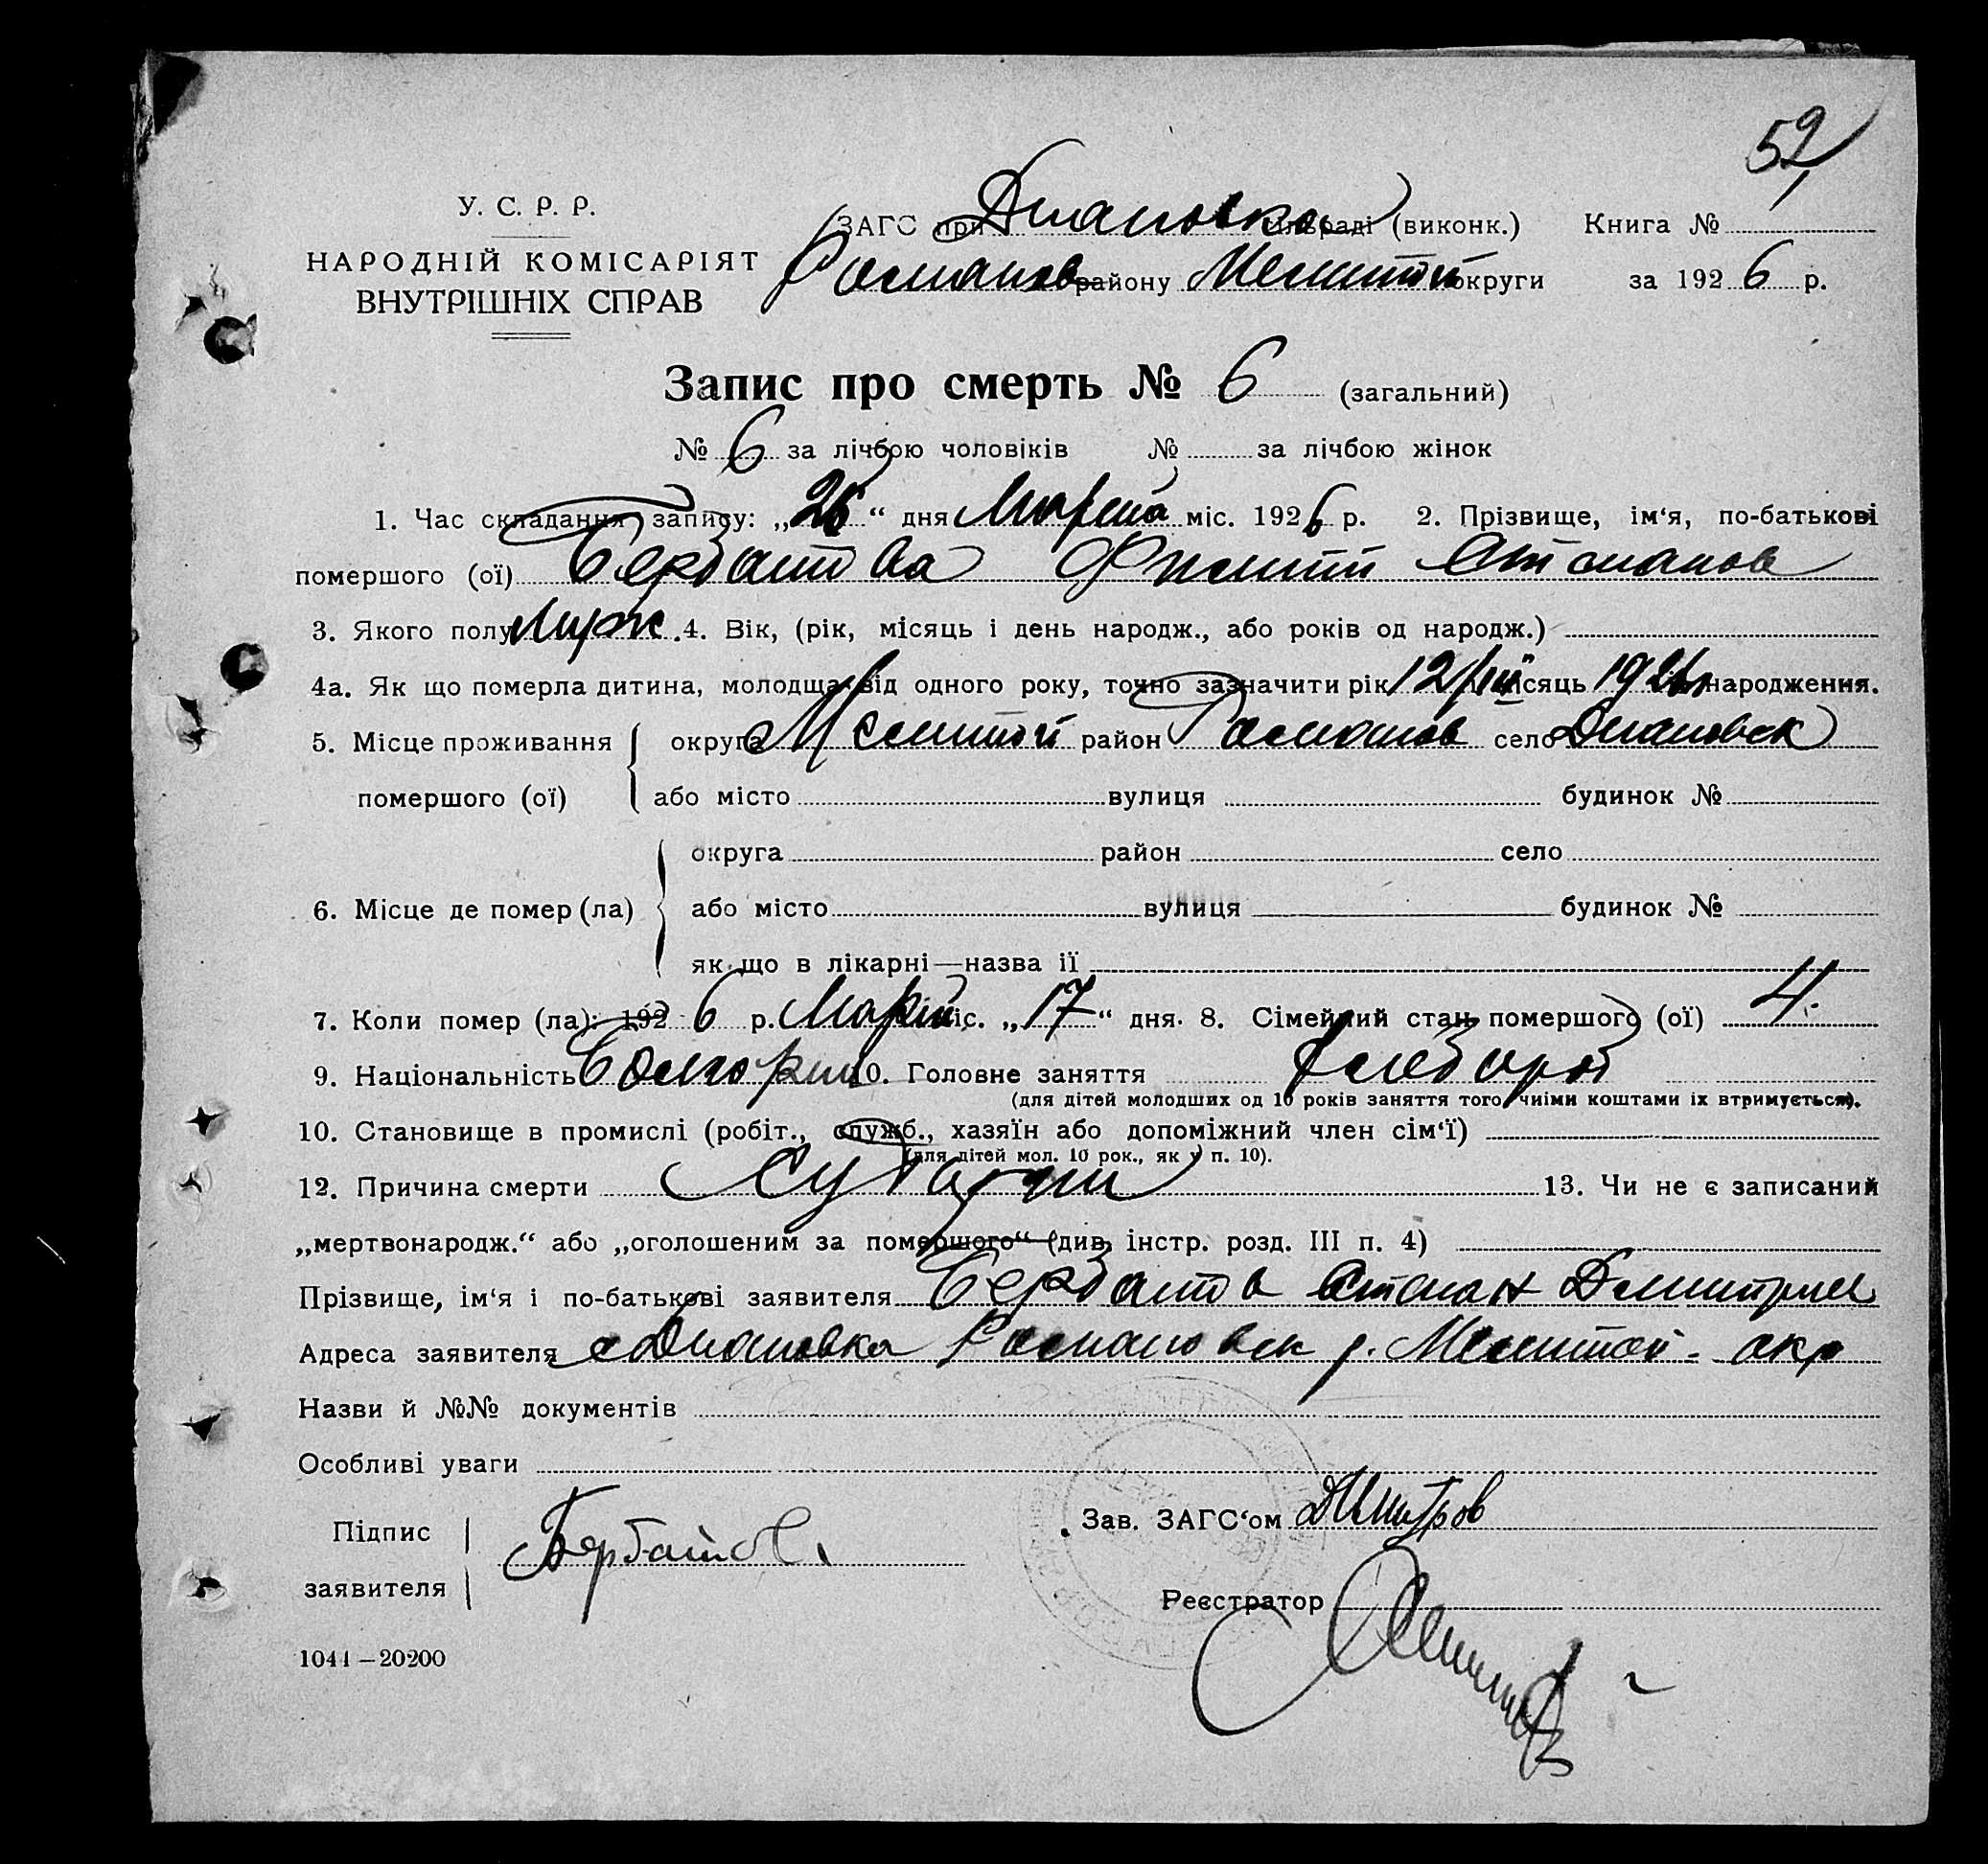 52
У. С. Р. Р.
НАРОДНІЙ КОМІСАРІЯТ
ВНУТРІШНІХ СПРАВ
ЗАГС при Диановка сільраді (виконк.) Книга №
району Мелитой округи за 1926 р.
Запис про смерть № 6 (загальний)
№ 6 за лічбою чоловіків № за лічбою жінок
1. Час складання запису: „26“ дня Марта міс. 1926 р. 2. Прізвище, ім‘я, по-батькові
помершого (ої) Бербатова Филипп
3. Якого полу Муж. 4. Вік, (рік, місяць і день народж., або років од народж.)
4а. Як що померла дитина, молодша від одного року, точно зазначити рік 12/III місяць 1926 народження.
5. Місце проживання округа Мелитой район село Диановск
помершого (ої) або місто вулиця будинок №
округа район село
6. Місце де помер (ла) або місто вулиця будинок №
як що в лікарні—назва її
7. Коли помер (ла): 1926 р. Марта міс. „17“ дня. 8. Сімейний стан помершого (ої) 4.
9. Національність Болгарин 10. Головне заняття Хлебороб
(для дітей молодших од 10 років заняття того, чиїми коштами їх втримується).
10. Становище в промислі (робіт., служб., хазяїн або допоміжний член сім‘ї)
(для дітей мол. 10 рок., як у п. 10).
12. Причина смерти 13. Чи не є записаний
„мертвонародж.“ або „оголошеним за помершого“ (див. інстр. розд. III п. 4)
Прізвище, ім‘я і по-батькові заявителя Бербатов Степан Дмитриев
Адреса заявителя с Диановка р. Мелитой. окр
Назви й №№ документів
Особливі уваги
Підпис
заявителя Бербатов
Зав. ЗАГС‘ом Дмитров
Реєстратор
1041—20200